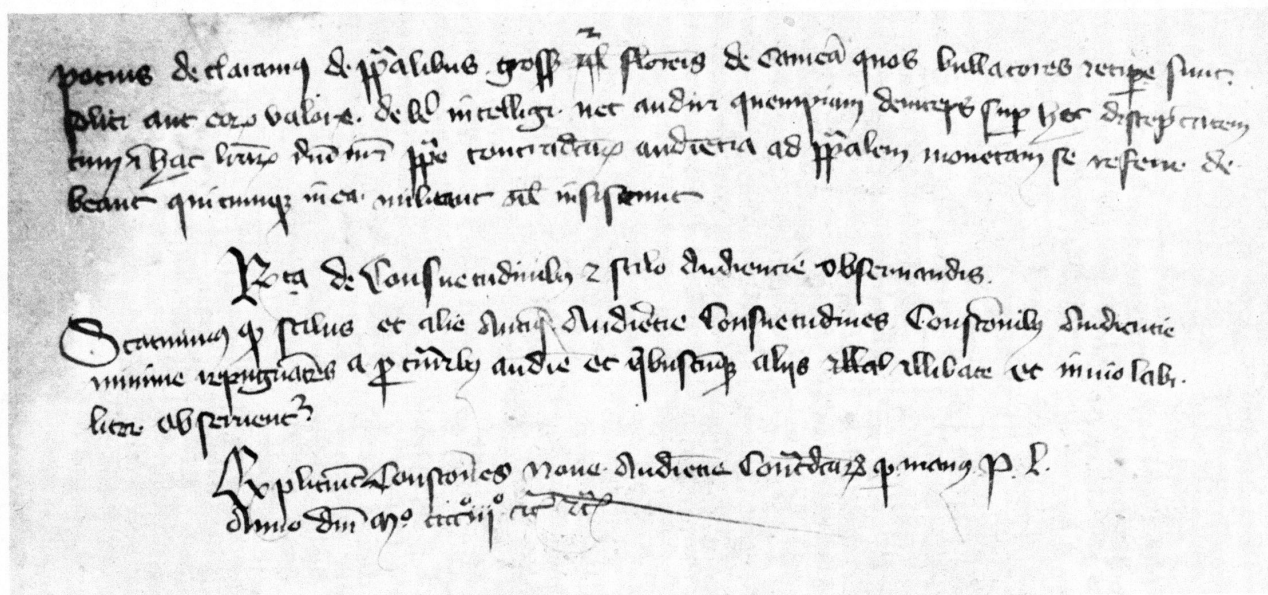 potius declaramus de papalibus gross vel florenis de Camera quos bullatores recipere sunt
soliti aut eorum valore debet intelligi nec audiri quempiam deinceps super hoc disceptantem
cum in hac litterarum domini nostri pape contradictarum audientia ad papalem monetam se referre de-
beant quicumque in ea militant vel insistunt
Rca de Consuetudinibus et stilo Audiencie observandis.
Statuimus quod stilus et alie Antique Audientie Consuetudines Constitutionibus Audiencie
minime repugnantes a procuratoribus audiencie et quibuscumque aliis illibate et inviolabi-
liter observentur
Expliciunt Constitutiones nove Audiencie Contradictarum per manus P. L.
Anno domini Mo